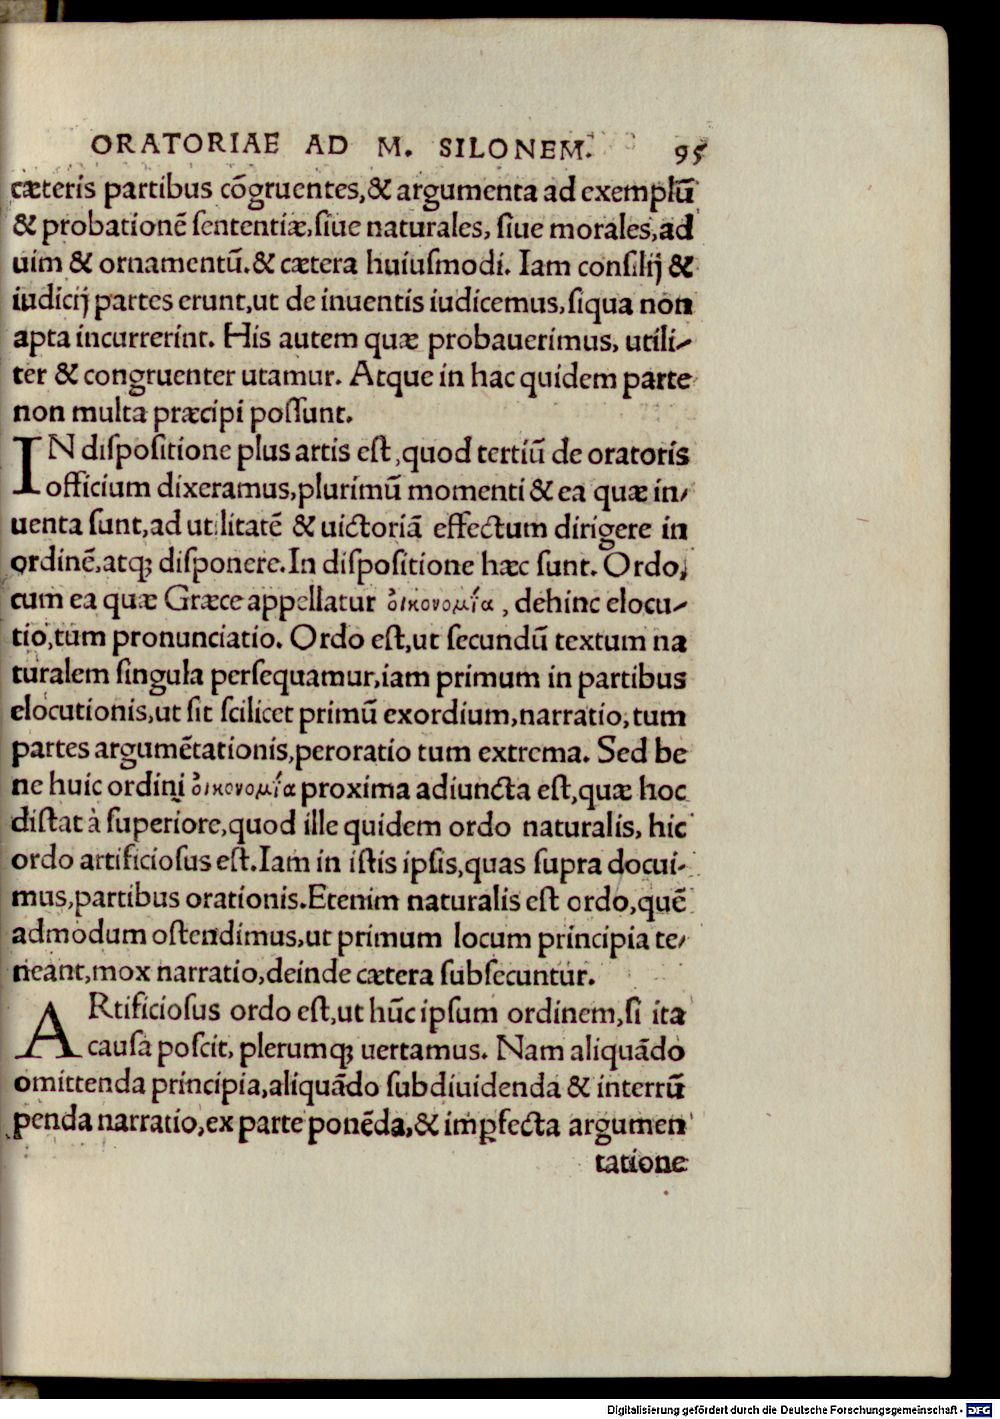 ORATORIAE AD M. SILONEM. 95
cæteris partibus cõgruentes,& argumenta ad exemplũ
& probationẽ sententiæ,siue naturales, siue morales,ad
uim & ornamentũ.& cætera huiusmodi. Iam consilij &
iudicij partes erunt,ut de inuentis iudicemus,siqua non
apta incurrerint. His autem quæ probauerimus, utili-
ter & congruenter utamur. Atque in hac quidem parte
non multa præcipi possunt.
IN dispositione plus artis est,quod tertiũ de oratoris
officium dixeramus,plurimũ momenti & ea quæ in-
uenta sunt,ad utilitatẽ & uictoriã effectum dirigere in
ordinẽ,atq; disponere.In dispositione hæc sunt. Ordo,
cum ea quæ Græce appellatur ὀικονομία, dehinc elocu-
tio,tum pronunciatio. Ordo est,ut secundũ textum na
turalem singula persequamur,iam primum in partibus
elocutionis,ut sit scilicet primũ exordium,narratio,tum
partes argumẽtationis,peroratio tum extrema. Sed be
ne huic ordini ὀικονομία proxima adiuncta est,quæ hoc
distat à superiore,quod ille quidem ordo naturalis, hic
ordo artificiosus est.Iam in istis ipsis,quas supra docui-
mus,partibus orationis.Etenim naturalis est ordo,quẽ
admodum ostendimus,ut primum locum principia te-
neant,mox narratio,deinde cætera subsecuntur.
ARtificiosus ordo est,ut hũc ipsum ordinem,si ita
causa poscit, plerumq; uertamus. Nam aliquãdo
omittenda principia,aliquãdo subdiuidenda & interrũ
penda narratio,ex parte ponẽda,& imꝑfecta argumen
tatione
Digitalisierung gefördert durch die Deutsche Forschungsgemeinschaft - DFG